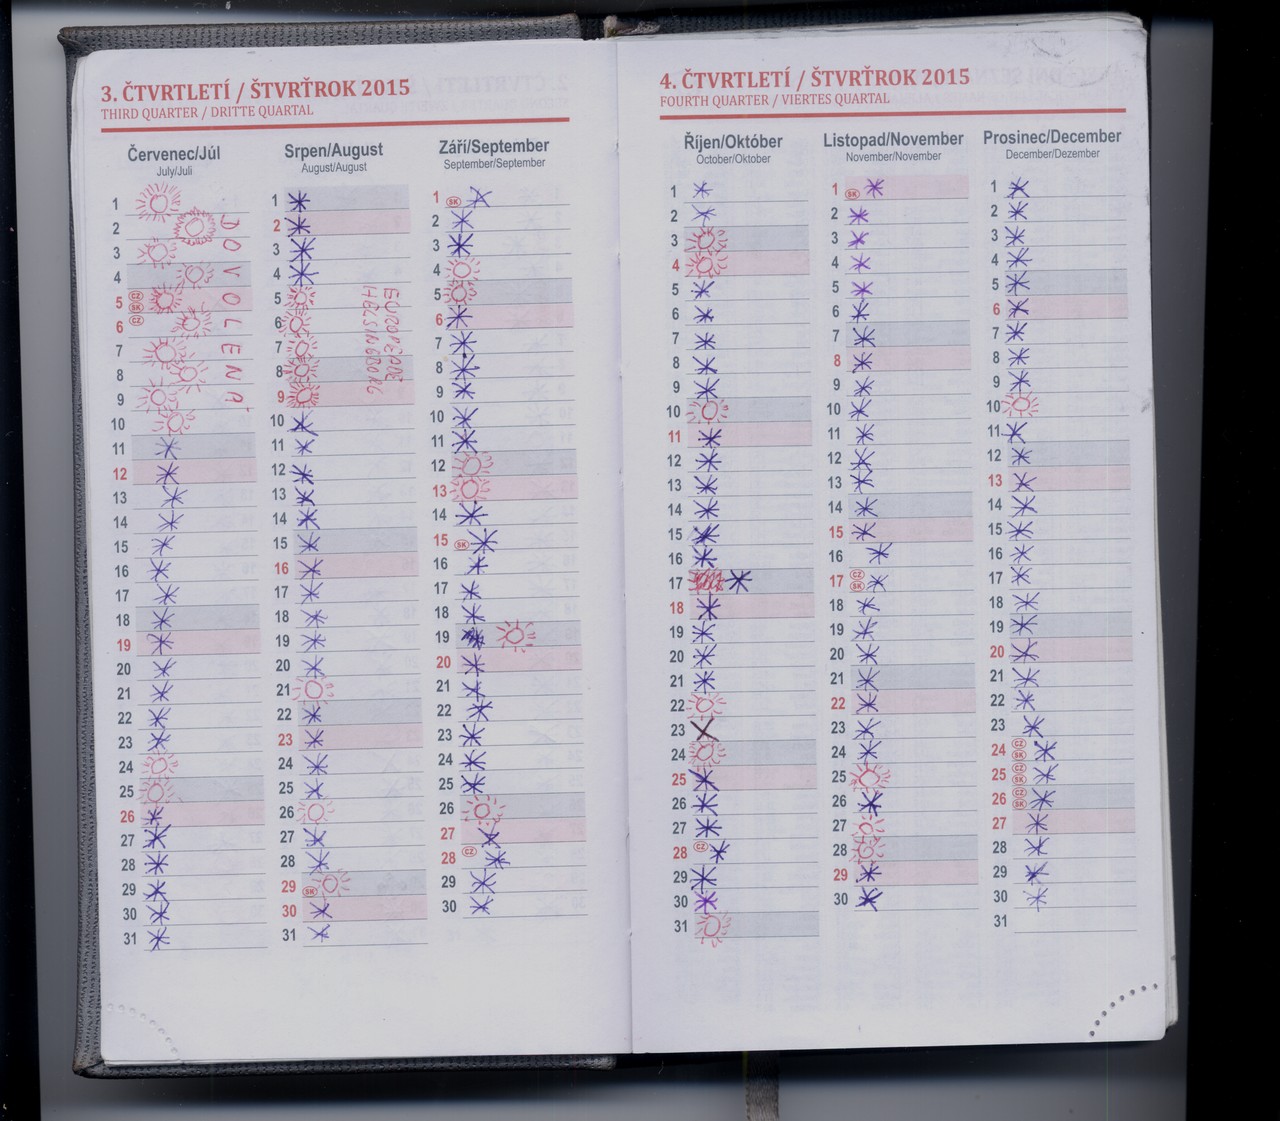 3. ČTVRTLETÍ / ŠTVRŤROK 2015
THIRD QUARTER / DRITTE QUARTAL
Červenec/Júl
July/Juli
1
2
3
4
5 CZ SK
6 CZ
7
8
9
10
11
12
13
14
15
16
17
18
19
20
21
22
23
24
25
26
27
28
29
30
31
DOVOLENÁ
Srpen/August
August/August
1
2
3
4
5
6
7
8
9
10
11
12
13
14
15
16
17
18
19
20
21
22
23
24
25
26
27
28
29 SK
30
31
HELSINGBORG
Září/September
September/September
1 SK
2
3
4
5
6
7
8
9
10
11
12
13
14
15 SK
16
17
18
19
20
21
22
23
24
25
26
27
28 CZ
29
30
4. ČTVRTLETÍ / ŠTVRŤROK 2015
FOURTH QUARTER / VIERTES QUARTAL
Říjen/Október
October/Oktober
1
2
3
4
5
6
7
8
9
10
11
12
13
14
15
16
17
18
19
20
21
22
23
24
25
26
27
28 CZ
29
30
31
Listopad/November
November/November
1 SK
2
3
4
5
6
7
8
9
10
11
12
13
14
15
16
17 CZ SK
18
19
20
21
22
23
24
25
26
27
28
29
30
Prosinec/December
December/Dezember
1
2
3
4
5
6
7
8
9
10
11
12
13
14
15
16
17
18
19
20
21
22
23
24 CZ SK
25 CZ SK
26 CZ SK
27
28
29
30
31